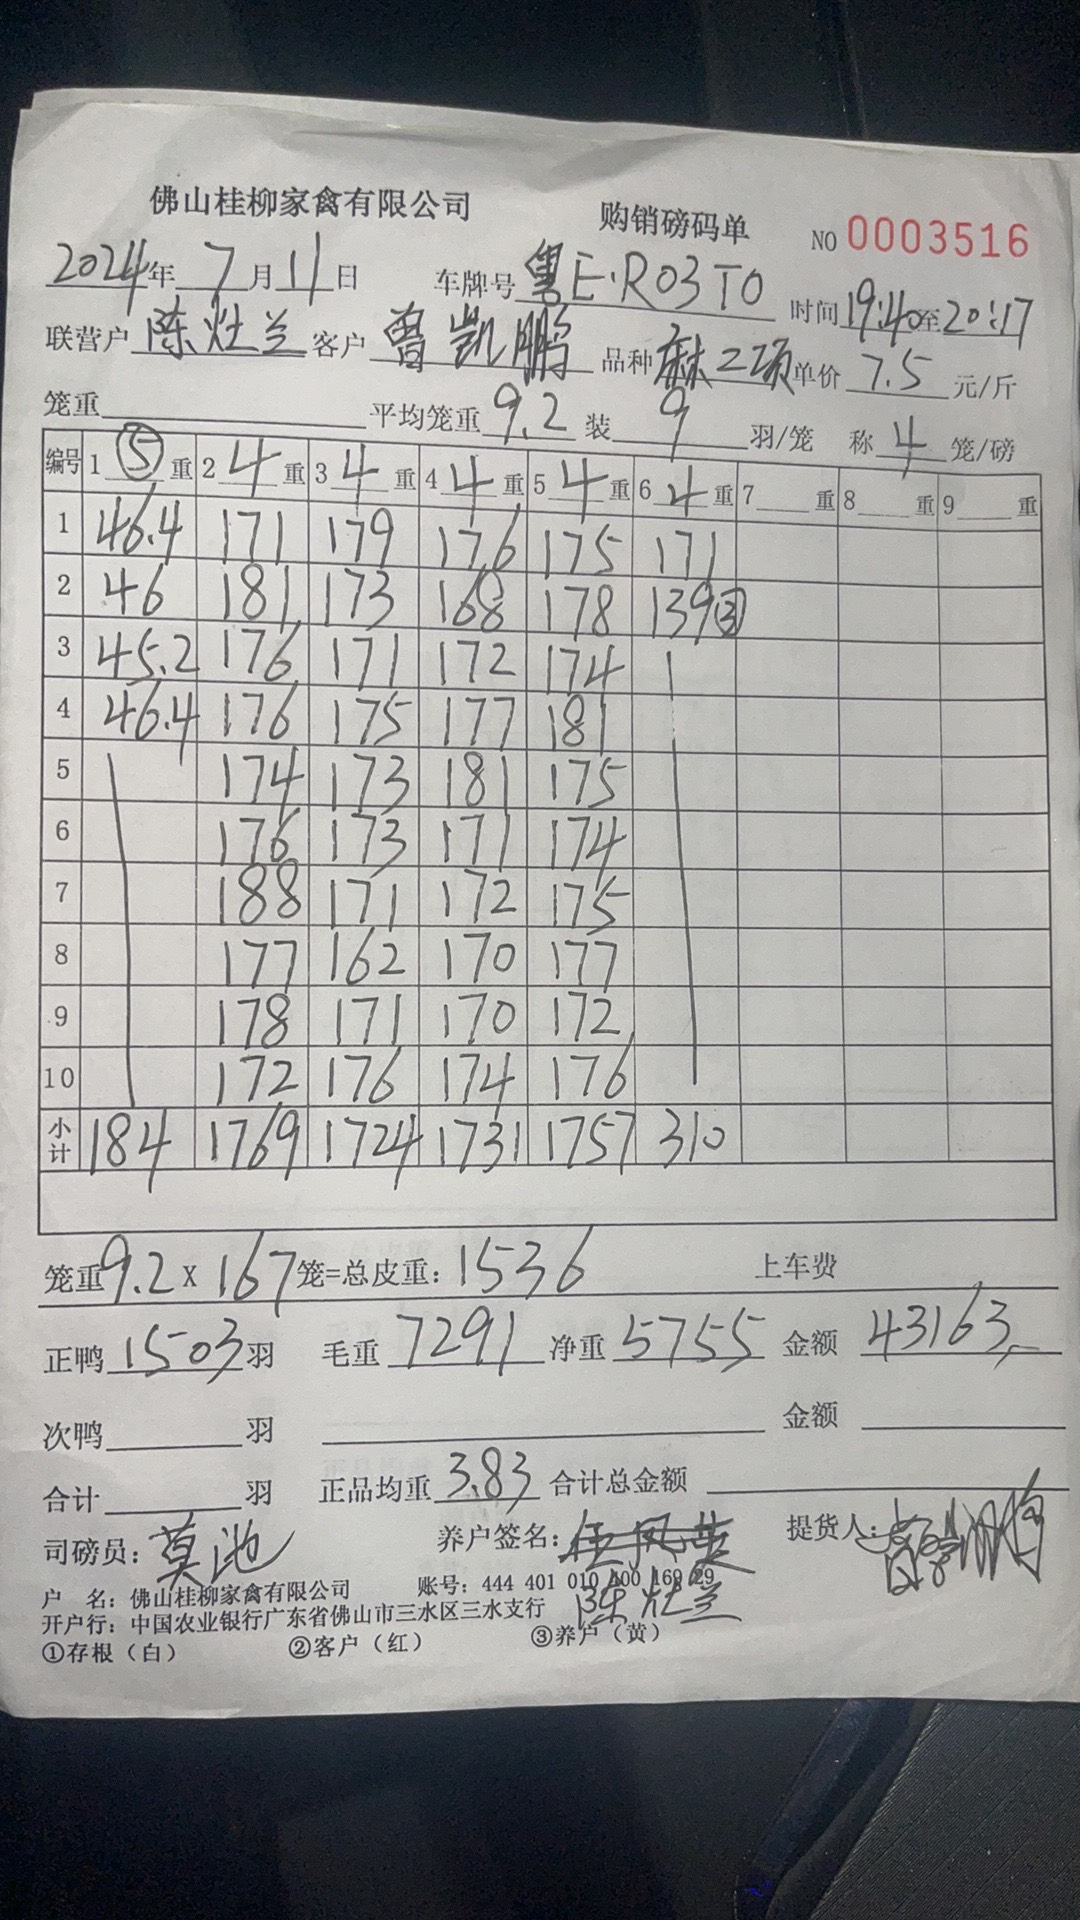 佛山桂柳家禽有限公司 购销磅码单 NO 0003516
2024年 7月11日 车牌号 粤E·R03T0 时间19:40至20:17
联营户 陈灶兰 客户 曾凯鹏 品种 麻二项 单价 7.5 元/斤
笼重 平均笼重 9.2 装 9 羽/笼 称 4 笼/磅
编号 1 ⑤ 重 2 4 重 3 4 重 4 4 重 5 4 重 6 4 重 7 重 8 重 9 重
1 46.4 171 179 176 175 171
2 46 181 173 168 178 139③
3 45.2 176 171 172 174
4 46.4 176 175 177 181
5 174 173 181 175
6 176 173 171 174
7 188 171 172 175
8 177 162 170 177
9 178 171 170 172
10 172 176 174 176
小计 184 1769 1724 1731 1757 310
笼重9.2 X 167笼=总皮重：1536 上车费
正鸭 1503 羽 毛重 7291 净重 5755 金额 43163
次鸭 羽 金额
合计 羽 正品均重 3.83 合计总金额
司磅员：莫池 养户签名： 提货人：
户 名：佛山桂柳家禽有限公司 账号：444 401 010 400 169 29
陈灶兰
开户行：中国农业银行广东省佛山市三水区三水支行
①存根（白） ②客户（红） ③养户（黄）